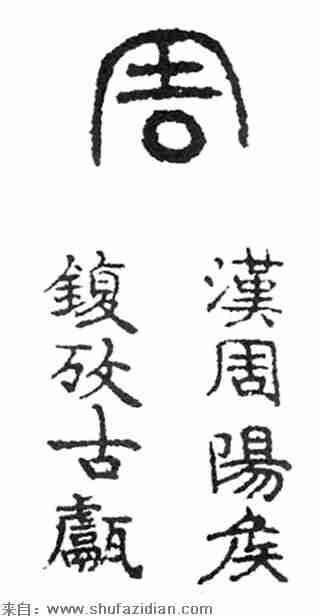 周
漢周陽矦
鍑攷古甗
来自：www.shufazidian.com